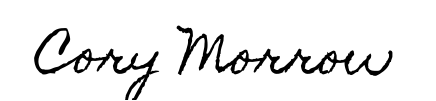 Cory Morrow